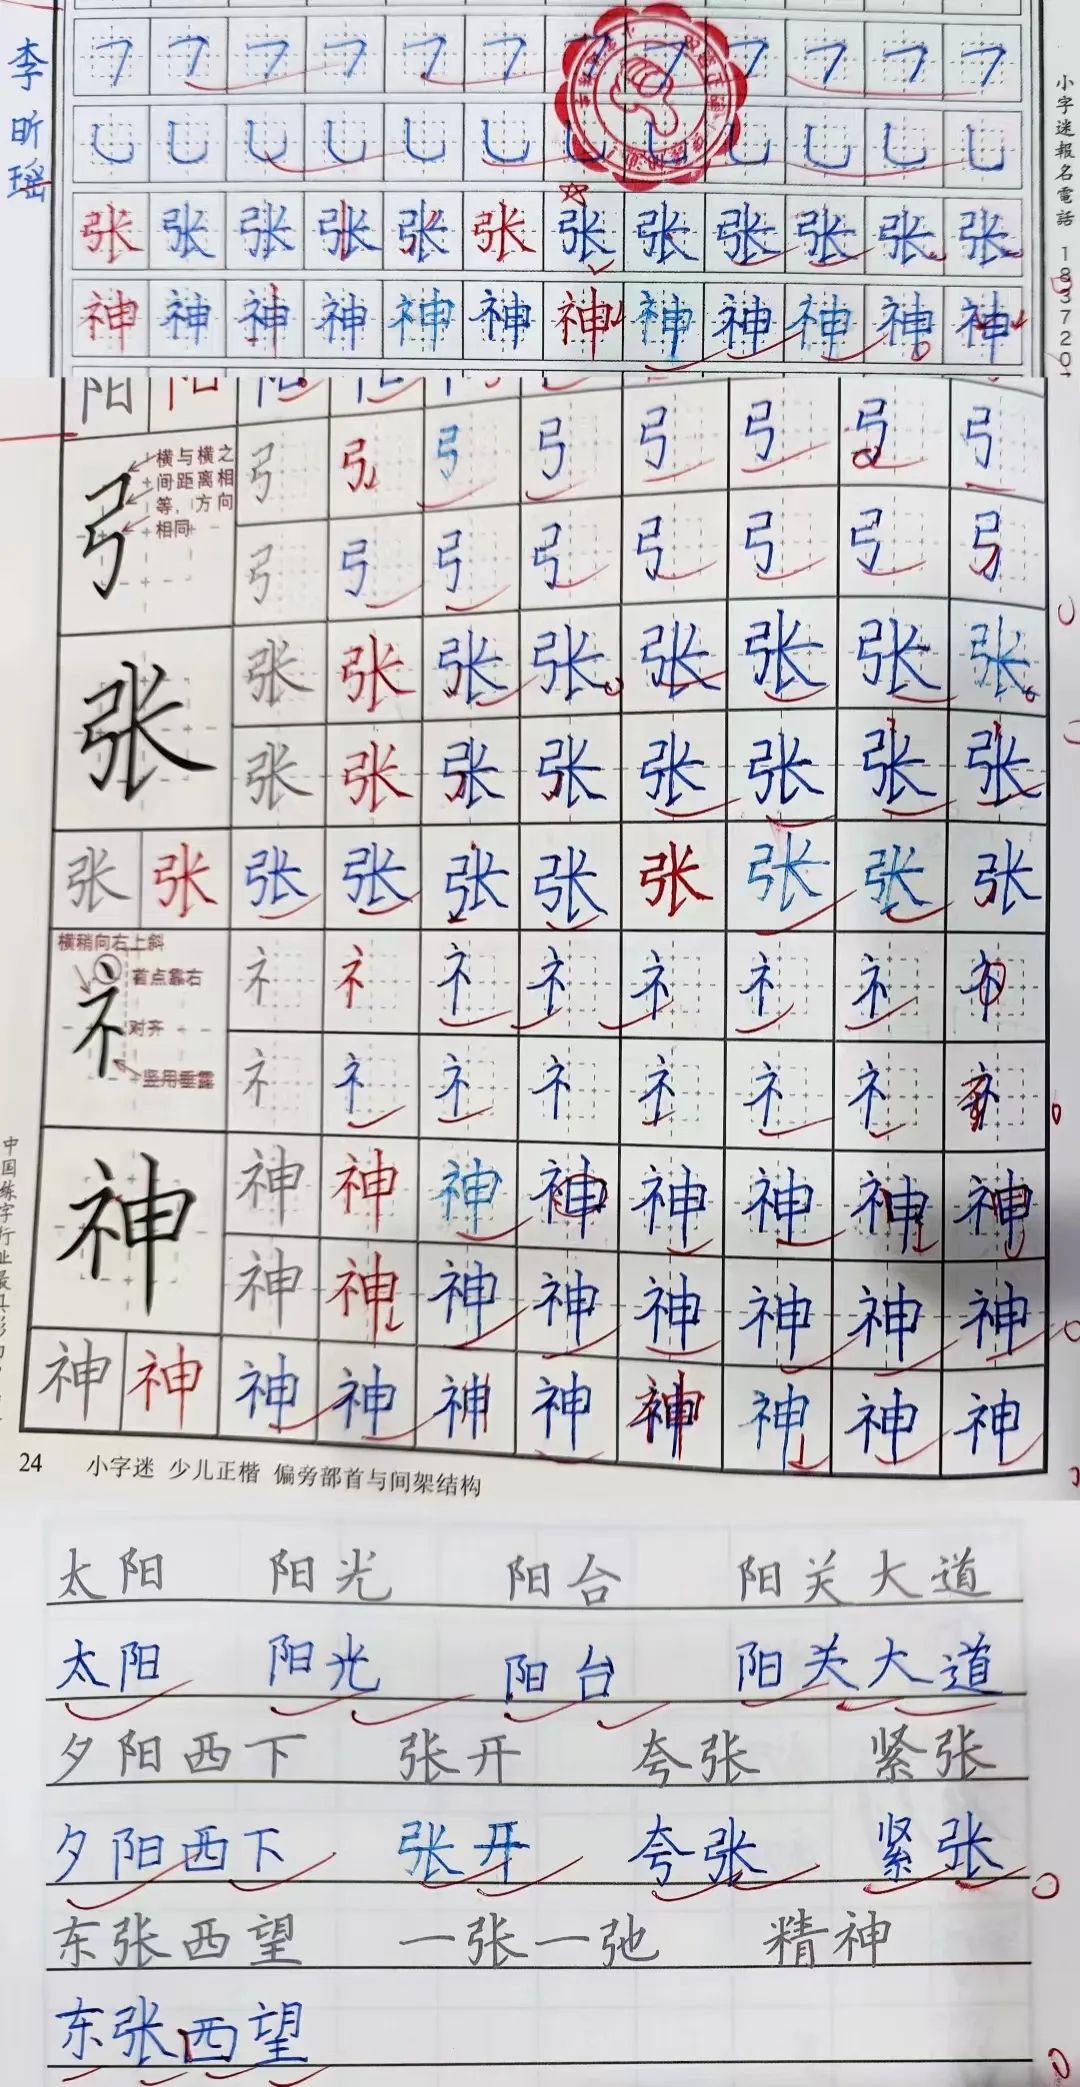 李昕瑶
小字迷報名電話 183720
フフフフフフフフフフフフ
乚乚乚乚乚乚乚乚乚乚乚乚
张张张张张张张张张张张张
神神神神神神神神神神神神
阳阳
弓
横与横之
间距离相
等,方向
相同
弓弓弓弓弓弓弓弓
弓弓弓弓弓弓弓弓
张
张张张张张张张张
张张张张张张张张
张张张张张张张张张张
横稍向右上斜
首点靠右
对齐
竖用垂露
礻
礻礻礻礻礻礻礻礻
礻礻礻礻礻礻礻礻
神
神神神神神神神神
神神神神神神神神
神神神神神神神神神神
中国练字行业最具影
24 小字迷 少儿正楷 偏旁部首与间架结构
太阳 阳光 阳台 阳关大道
太阳 阳光 阳台 阳关大道
夕阳西下 张开 夸张 紧张
夕阳西下 张开 夸张 紧张
东张西望 一张一弛 精神
东张西望